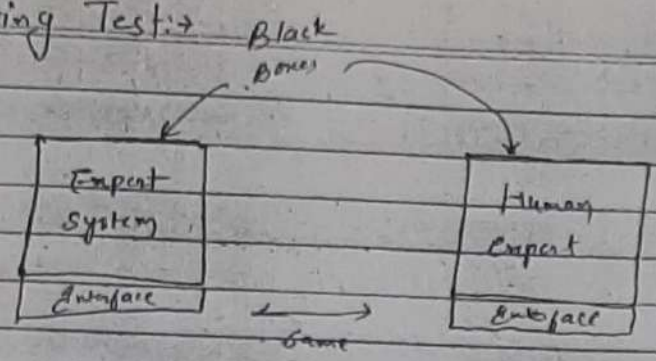 ing Test:→
Black
Boxes
Expert
System
Interface
Human
Expert
Interface
Same